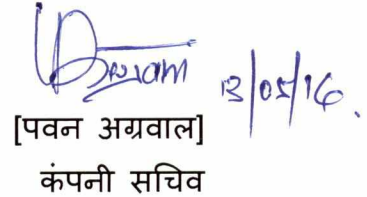 13/05/16.
[पवन अग्रवाल]
कंपनी सचिव